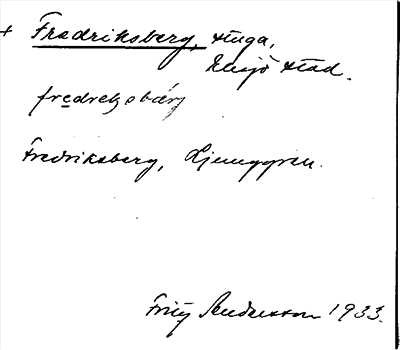 + Fredriksberg, stuga,
Eksjö stad.
fredreksbärj
Fredriksberg, Ljunggren.
Fritz Andersson 1933.